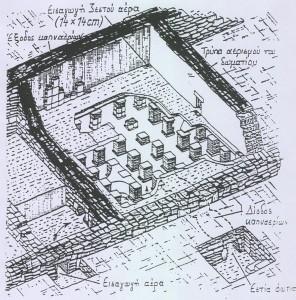 Εισαγωγή ζεστού αέρα
(14×14cm)
Έξοδος καπναερίων
Τρύπα αερισμού του
δωματίου
Δίοδος
καπναερίων
Εισαγωγή αέρα
Εστία φωτιά